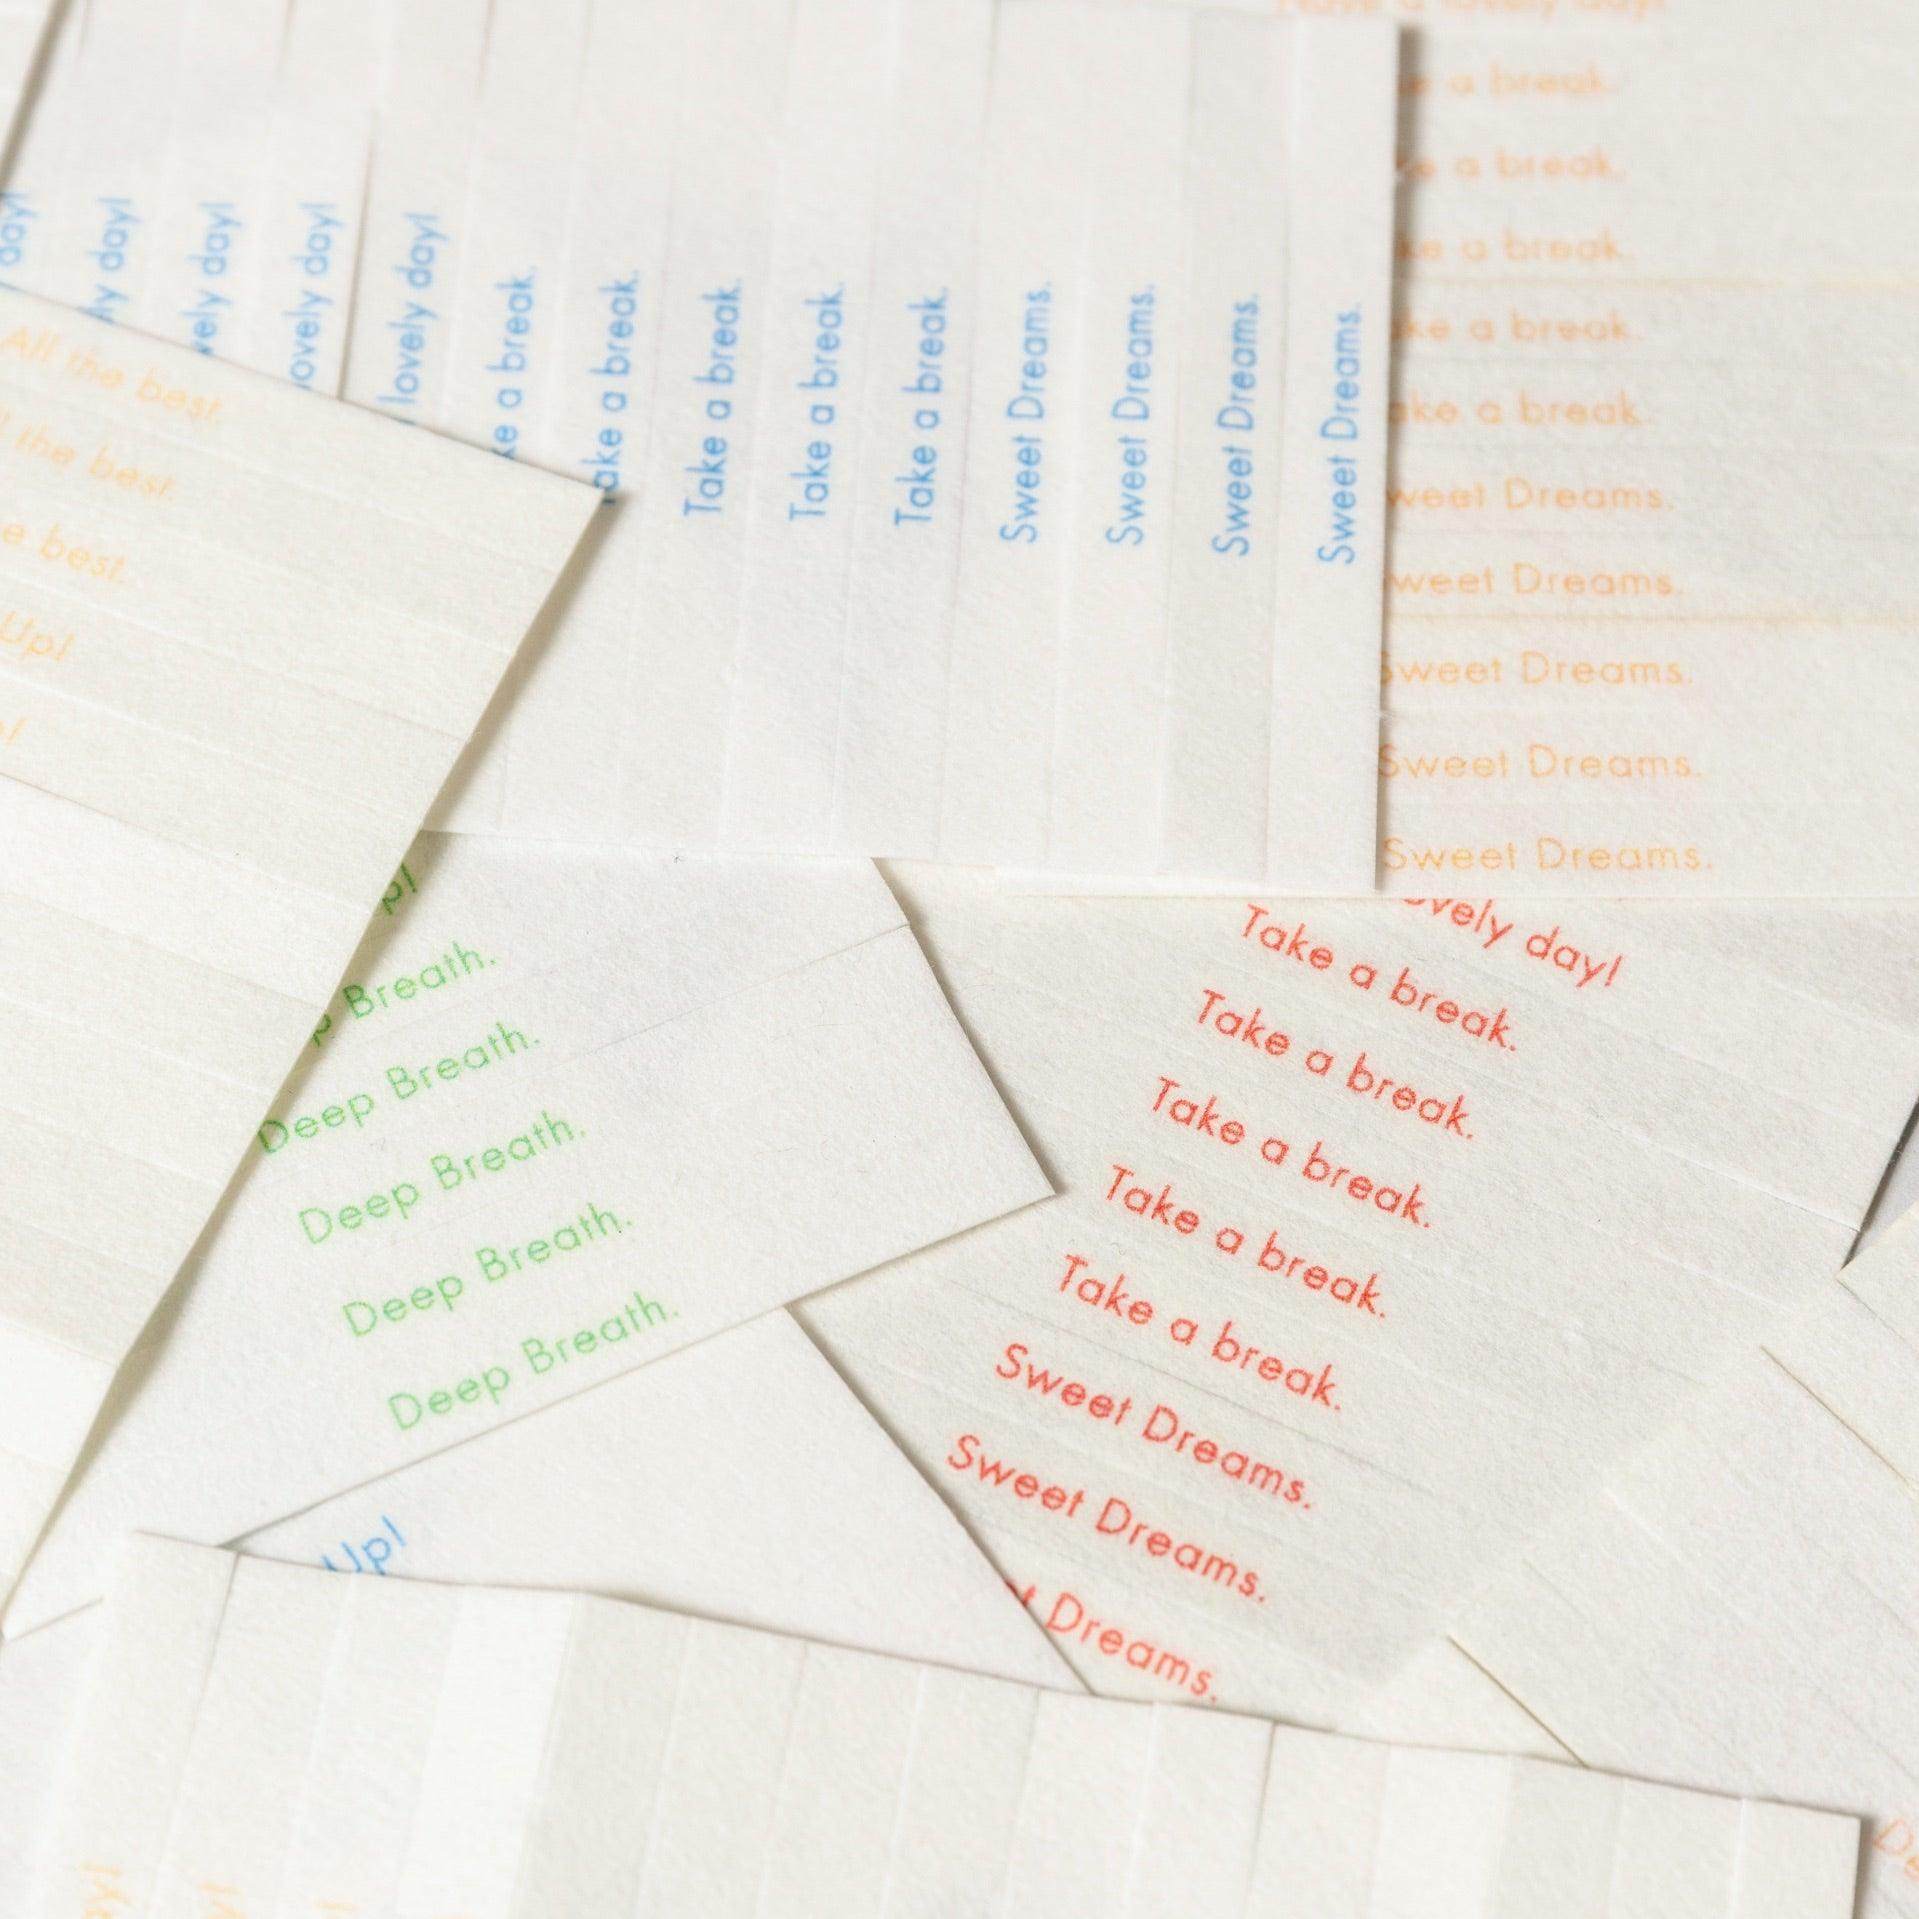 day!
day!
lovely day!
lovely day!
Take a break.
Take a break.
Take a break.
Take a break.
Take a break.
Sweet Dreams.
Sweet Dreams.
Sweet Dreams.
Sweet Dreams.
a lovely day!
a break.
a break.
a break.
a break.
a break.
Dreams.
Dreams.
Sweet Dreams.
Sweet Dreams.
Sweet Dreams.
All the best.
the best.
best.
Up!
Breath.
Deep Breath.
Deep Breath.
Deep Breath.
Deep Breath.
day!
Take a break.
Take a break.
Take a break.
Take a break.
Take a break.
Sweet Dreams.
Sweet Dreams.
Dreams.
Up!